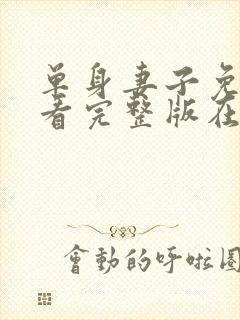 單身妻子免
看完整版在
會動的呼啦圈